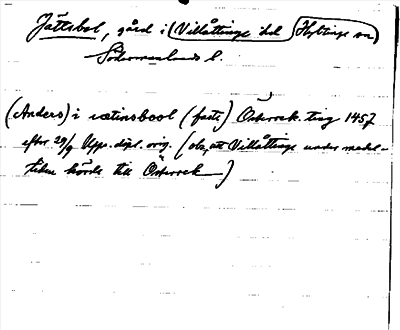 Jättsbol, gård i (Villåttinge hd (Hyltinge sn)
Södermanlands l.
(Anders) i iætinsbool (faste) Österrek. ting 1457
efter 29/9 Upps. dipl. orig. (obs, att Villåttinge under medel-
tiden hörde till Österrek)